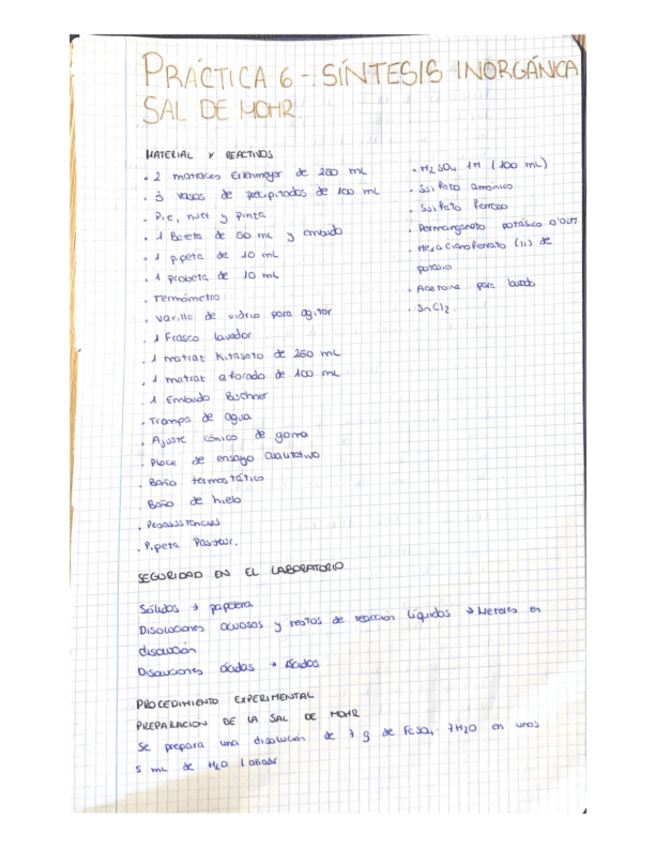 PRÁCTICA 6 - SÍNTESIS INORGÁNICA
SAL DE MOHR
MATERIAL Y REACTIVOS
· 2 matraces Erlenmeyer de 250 mL
· 3 vasos de precipitados de 100 mL
· Pie, nuez y pinza
· 1 Bureta de 50 mL y embudo
· 1 pipeta de 10 mL
· 1 probeta de 10 mL
· Termómetro
· Varilla de vidrio para agitar
· 1 Frasco lavador
· 1 matraz Kitasato de 250 mL
· 1 matraz aforado de 100 mL
· 1 Embudo Buchner
· Trampa de agua
· Ajuste cónico de goma
· Placa de ensayo cualitativo
· Baño termostático
· Baño de hielo
· Pesasustancias
· Pipeta Pasteur.
· H2SO4 1M (100 mL)
· Sulfato amónico
· Sulfato ferroso
· Permanganato potásico 0'02M
· Hexacianoferrato (II) de
potasio
· Acetona para lavado
· SnCl2.
SEGURIDAD EN EL LABORATORIO
Sólidos → papelera
Disoluciones acuosas y restos de reacción líquidos → Metales en
disolución
Disoluciones ácidas → Ácidos
PROCEDIMIENTO EXPERIMENTAL
PREPARACION DE LA SAL DE MOHR
Se prepara una disolución de 7 g de FeSO4 · 7H2O en unos
5 mL de H2O (añadir